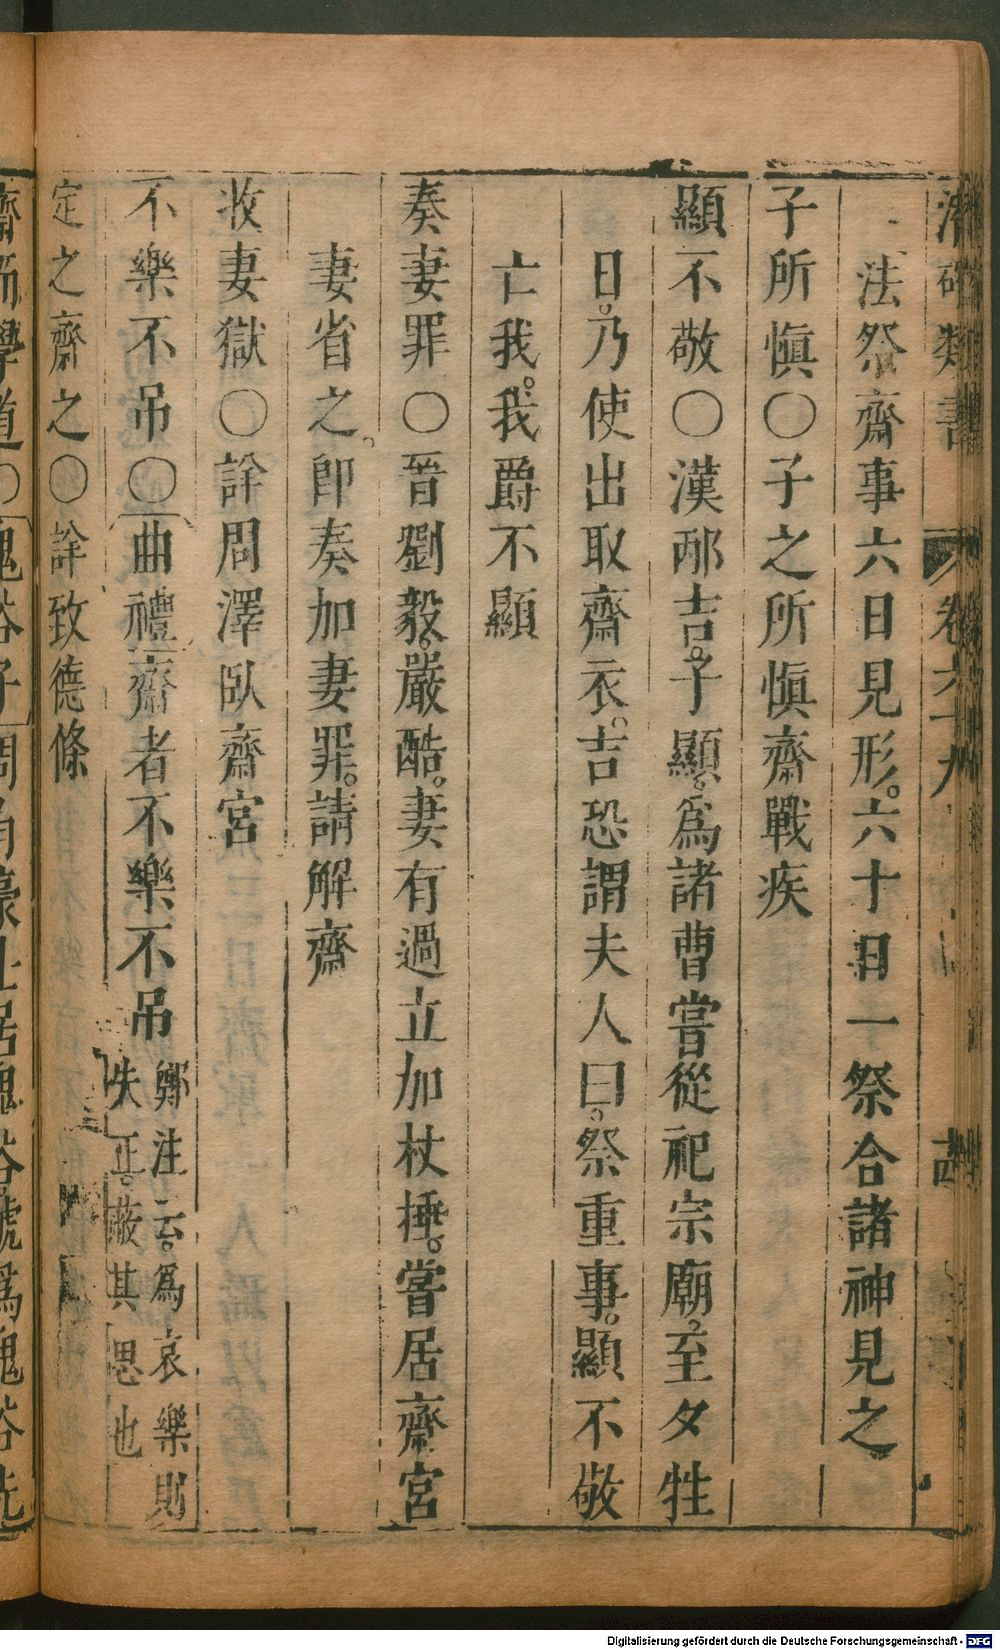 潛確類書 卷六十九
法祭齋事六日見形六十日一祭合諸神見之
子所愼〇子之所愼齋戰疾
顯不敬〇漢邴吉子顯爲諸曹嘗從祀宗廟至夕牲
日乃使出取齋衣吉恐謂夫人曰祭重事顯不敬
亡我我爵不顯
奏妻罪〇晉劉毅嚴酷妻有過立加杖捶嘗居齋宮
妻省之卽奏加妻罪請解齋
收妻獄〇詳周澤臥齋宮
不樂不吊〇曲禮齋者不樂不吊鄭注云爲哀樂則
失正蔽其思也
定之齋之〇詳致德條
齋 學道〇鬼谷子 居鬼谷號爲鬼谷先
Digitalisierung gefördert durch die Deutsche Forschungsgemeinschaft - DFG